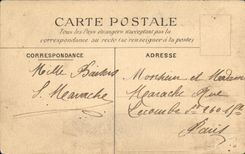 CARTE POSTALE
Tous les Pays étrangers n'acceptent pas la
correspondance au recto (se renseigner à la poste)
CORRESPONDANCE
ADRESSE
Mille Baisers
S. Marache
Monsieur et Madame
Marache Rue
Paris